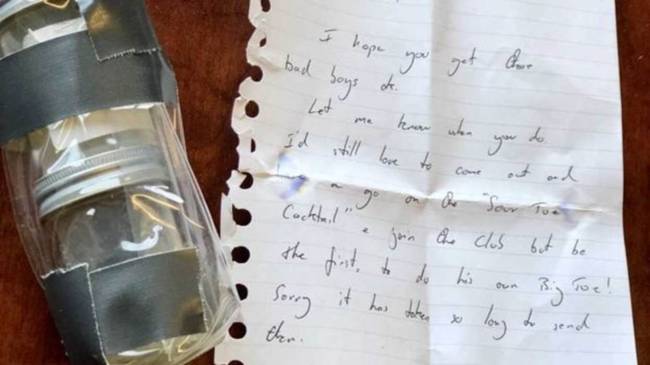 I hope you get these
bad boys ok.
Let me know when you do
I'd still love to come out and
a go on the "Sour Toe
Cocktail" & join the Club but be
the first, to do his own Big Toe!
Sorry it has taken so long to send
them.